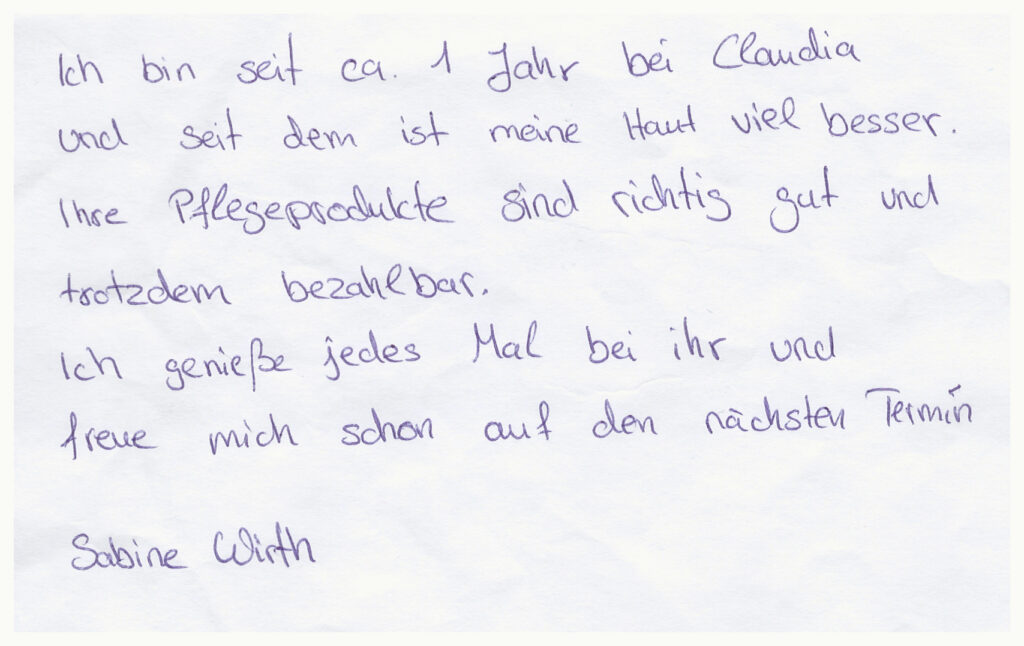 Ich bin seit ca. 1 Jahr bei Claudia
und seit dem ist meine Haut viel besser.
Ihre Pflegeprodukte sind richtig gut und
trotzdem bezahlbar.
Ich genieße jedes Mal bei ihr und
freue mich schon auf den nächsten Termin
Sabine Wirth